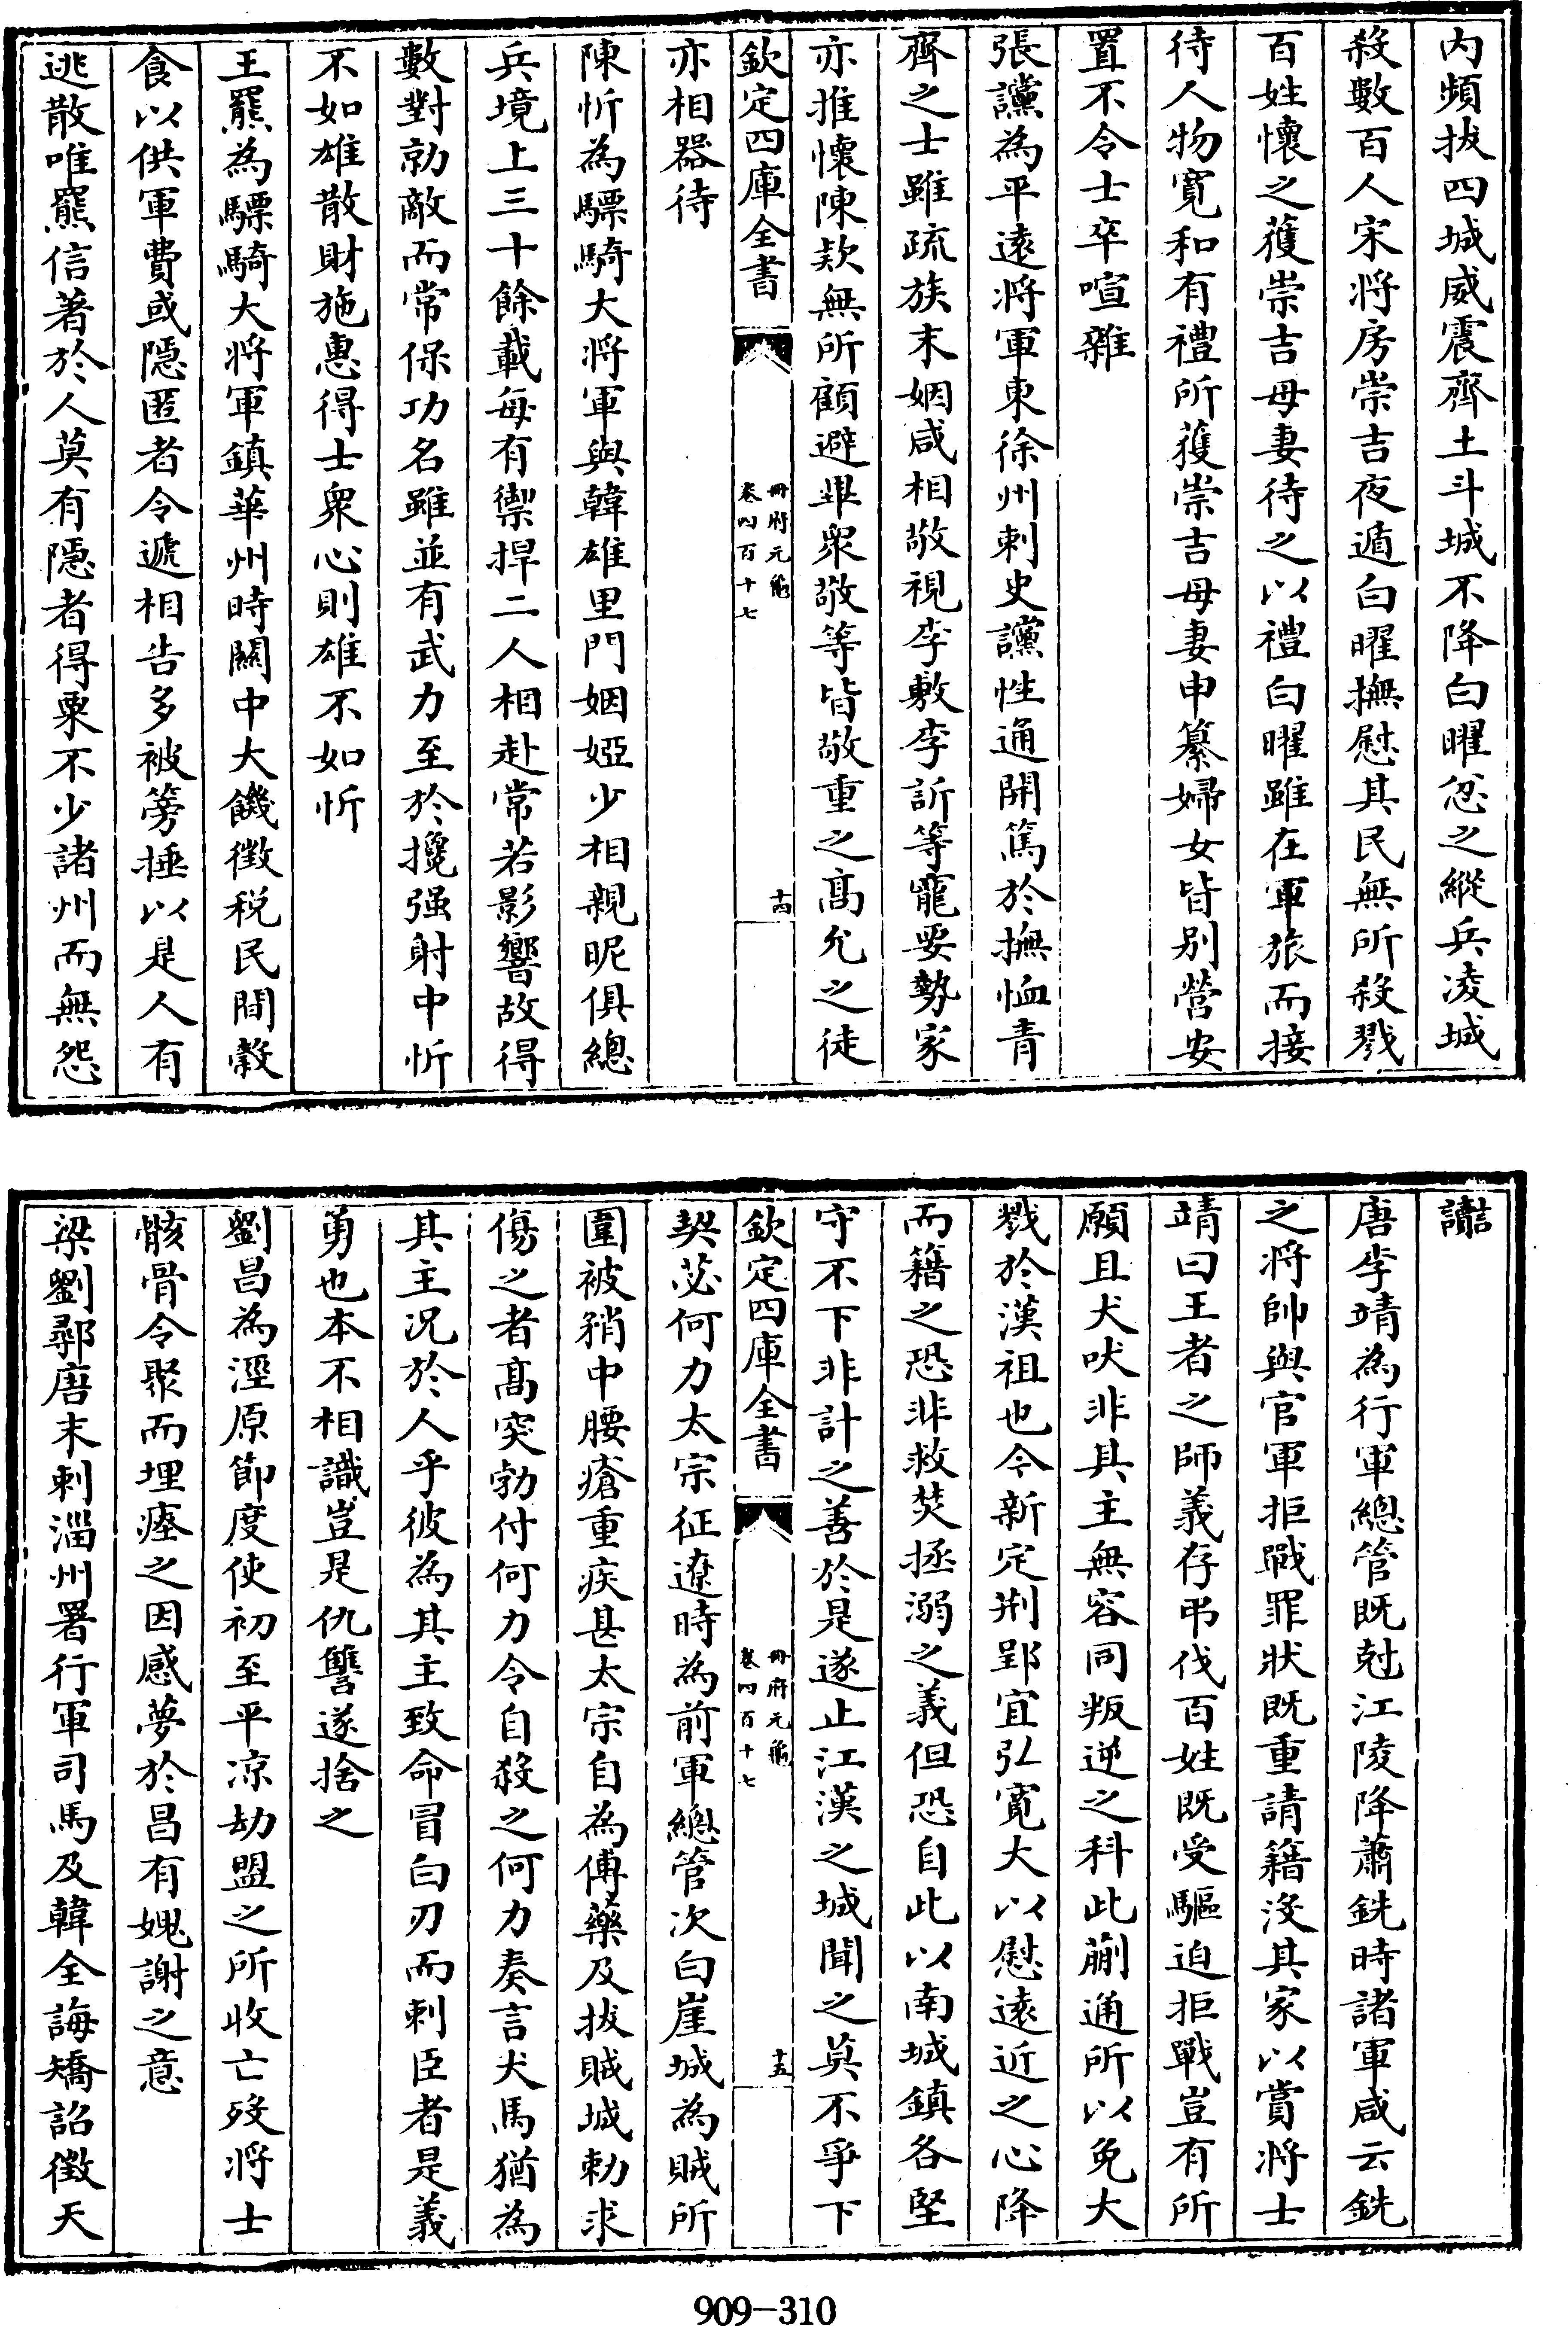 内頻拔四城威震齊土斗城不降白曜忿之縱兵凌城
殺數百人宋将房崇吉夜遁白曜撫慰其民無所殺戮
百姓懷之獲崇吉母妻待之以禮白曜雖在軍旅而接
待人物寛和有禮所獲崇吉母妻申纂婦女皆别營安
置不令士卒喧雜
張讜為平遠将軍東徐州刺史讜性通開篤於撫恤青
齊之士雖疏族末姻咸相敬視李敷李訢等寵要勢家
亦推懷陳欵無所顧避畢衆敬等皆敬重之髙允之徒
欽定四庫全書
冊府元龜
卷四百十七
十四
亦相器待
陳忻為驃騎大将軍與韓雄里門姻婭少相親昵俱總
兵境上三十餘載每有禦捍二人相赴常若影響故得
數對勍敵而常保功名雖並有武力至於攪强射中忻
不如雄散財施惠得士衆心則雄不如忻
王羆為驃騎大将軍鎮華州時關中大饑徴税民間穀
食以供軍費或隠匿者令遞相告多被篣捶以是人有
逃散唯羆信著於人莫有隱者得粟不少諸州而無怨
讟
唐李靖為行軍總管既尅江陵降蕭銑時諸軍咸云銑
之将帥與官軍拒戰罪狀既重請籍沒其家以賞将士
靖曰王者之師義存弔伐百姓既受驅迫拒戰豈有所
願且犬吠非其主無容同叛逆之科此蒯通所以免大
戮於漢祖也今新定荆郢宜弘寛大以慰遠近之心降
而籍之恐非救焚拯溺之義但恐自此以南城鎮各堅
守不下非計之善於是遂止江漢之城聞之莫不爭下
欽定四庫全書
冊府元龜
卷四百十七
十五
契苾何力太宗征遼時為前軍總管次白崖城為賊所
圍被矟中腰瘡重疾甚太宗自為傅藥及拔賊城勅求
傷之者髙突勃付何力令自殺之何力奏言犬馬猶為
其主况於人乎彼為其主致命冒白刃而刺臣者是義
勇也本不相識豈是仇讐遂捨之
劉昌為涇原節度使初至平凉劫盟之所收亡歿将士
骸骨令聚而埋瘞之因感夢於昌有媿謝之意
梁劉鄩唐末刺淄州署行軍司馬及韓全誨矯詔徴天
909-310